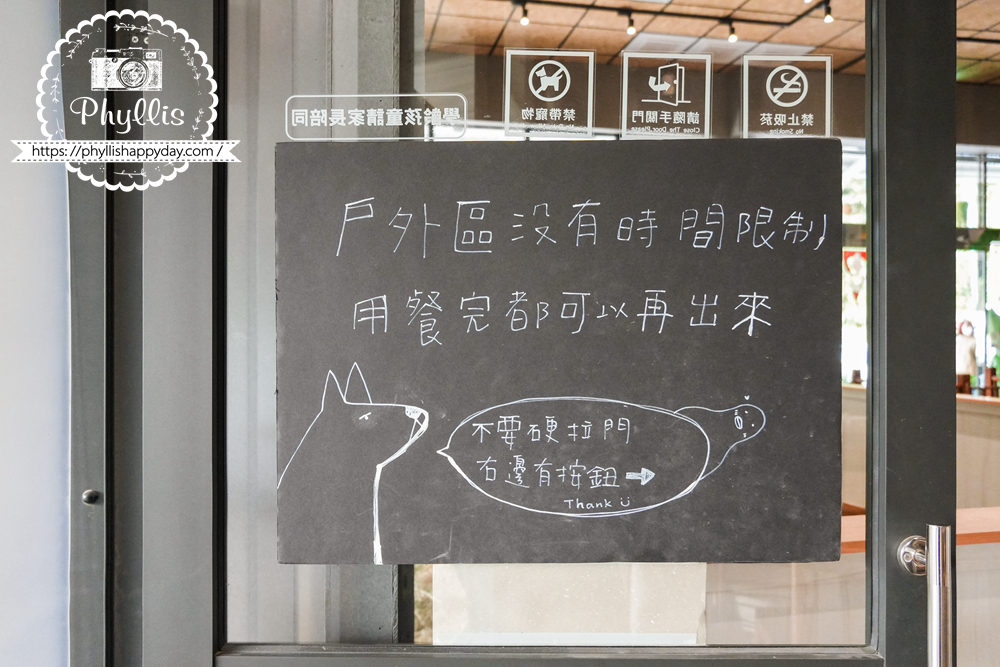 Phyllis
https://phyllishappyday.com/
學齡孩童請家長陪同
禁帶寵物
請隨手關門
Close The Door,Please
禁止吸菸
No Smoking
戶外區沒有時間限制
用餐完都可以再出來
不要硬拉門
右邊有按鈕→
Thank